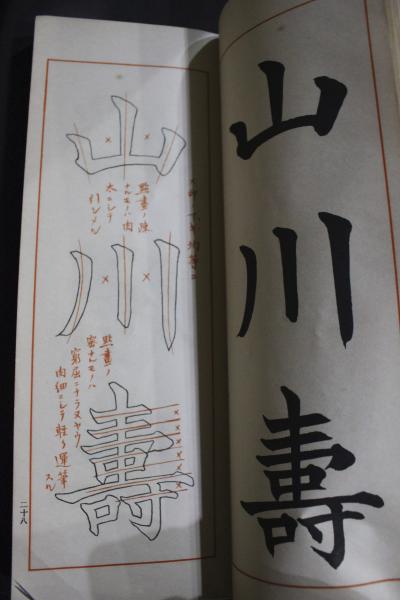 山
川
壽
均等ニ
山
川
壽
點畫ノ疎
ナルモノハ肉
太ニシテ
引シメル
點畫ノ
密ナルモノハ
窮屈ニナラヌヤウ
肉細ニシテ軽ク運筆
スル
二十八